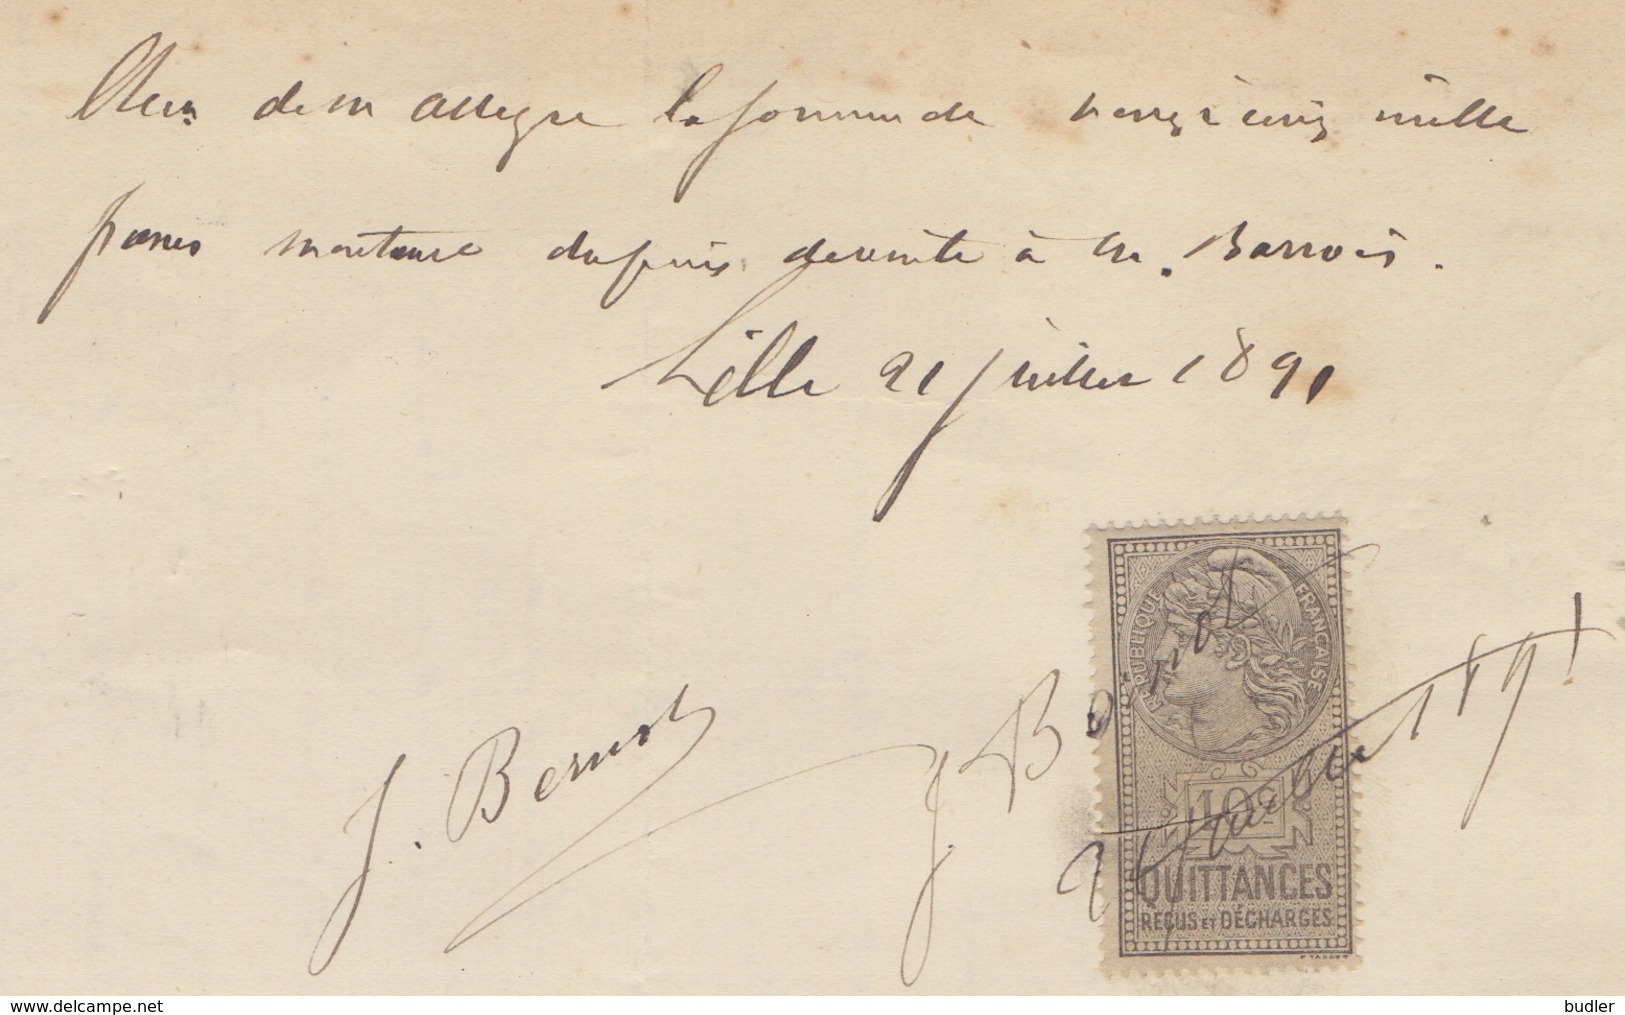 Reçu de M Allègre la somme de vingt cinq mille
francs montant du prix de vente à M. Barrois.
Lille 21 juillet 1891
J. Bernot
J. Bernot
21 juillet 1891
REPUBLIQUE FRANÇAISE
10c
QUITTANCES
REÇUS ET DÉCHARGES
www.delcampe.net
budler